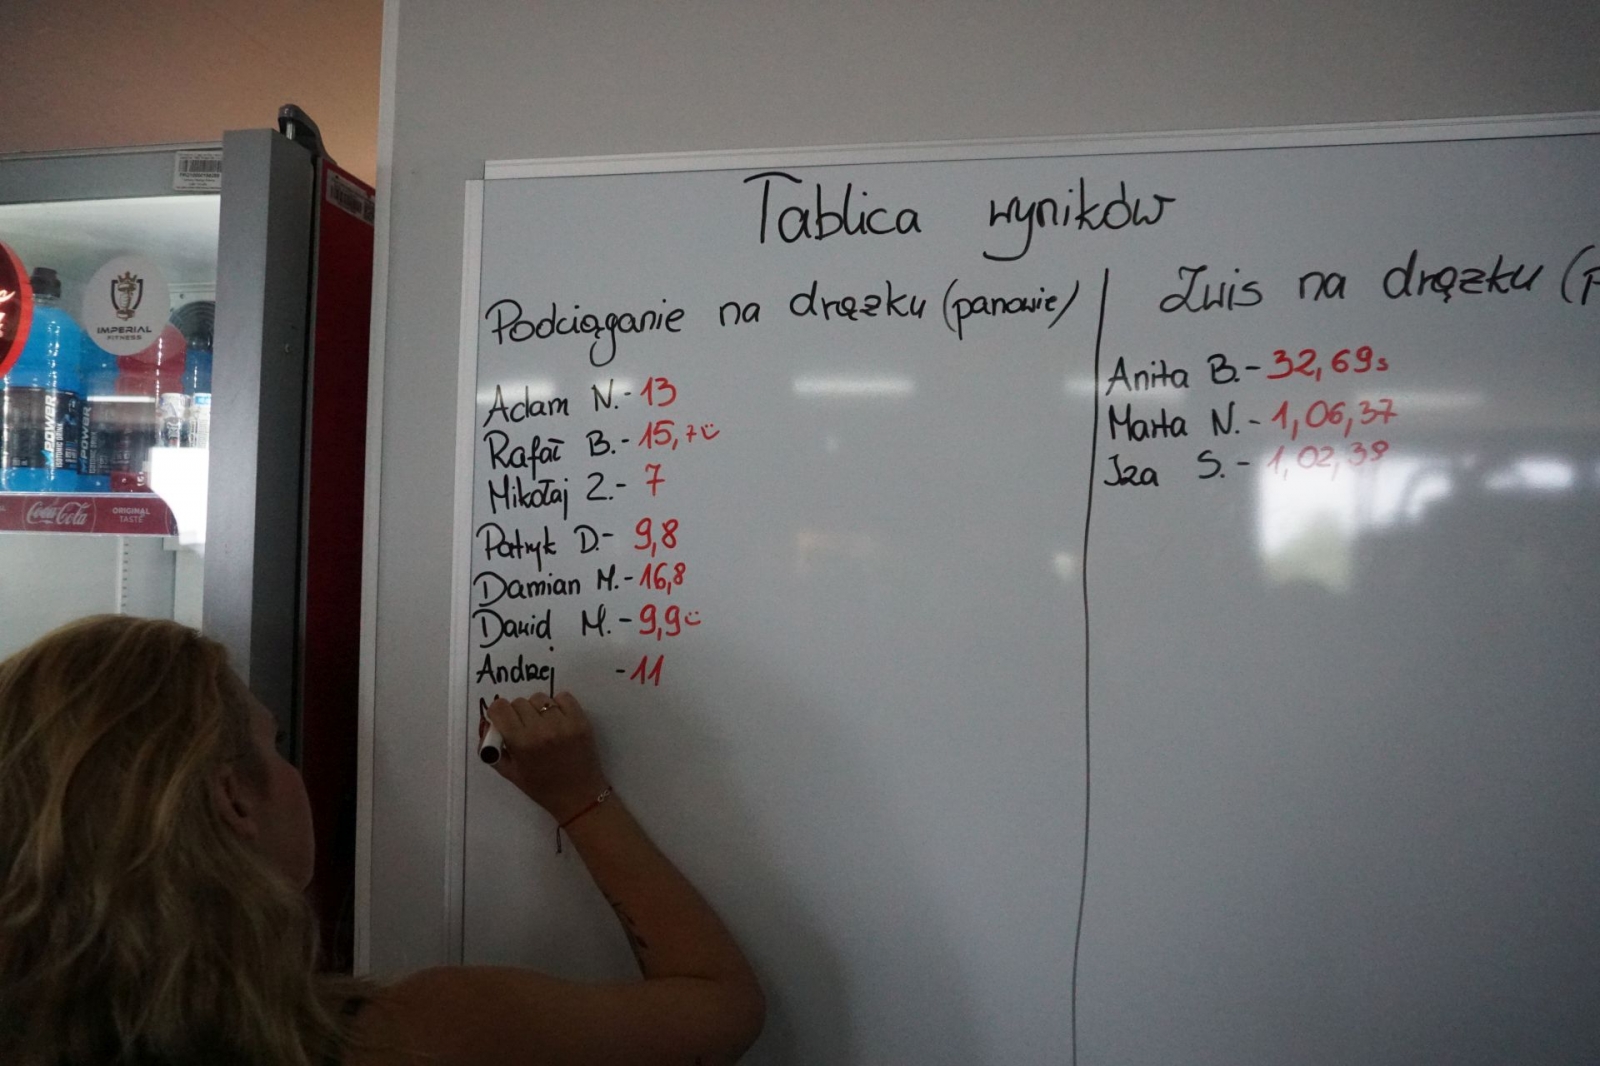 Tablica wyników
Podciąganie na drążku (panowie)
Adam N. - 13
Rafał B. - 15,7
Mikołaj Z. - 7
Patryk D. - 9,8
Damian M. - 16,8
Dawid M. - 9,9
Andrzej - 11
M
Zwis na drążku (p
Anita B. - 32,69s
Marta N. - 1,06,37
Iza S. - 1,02,38
IMPERIAL
FITNESS
POWER
POWER
Coca-Cola
ORIGINAL
TASTE